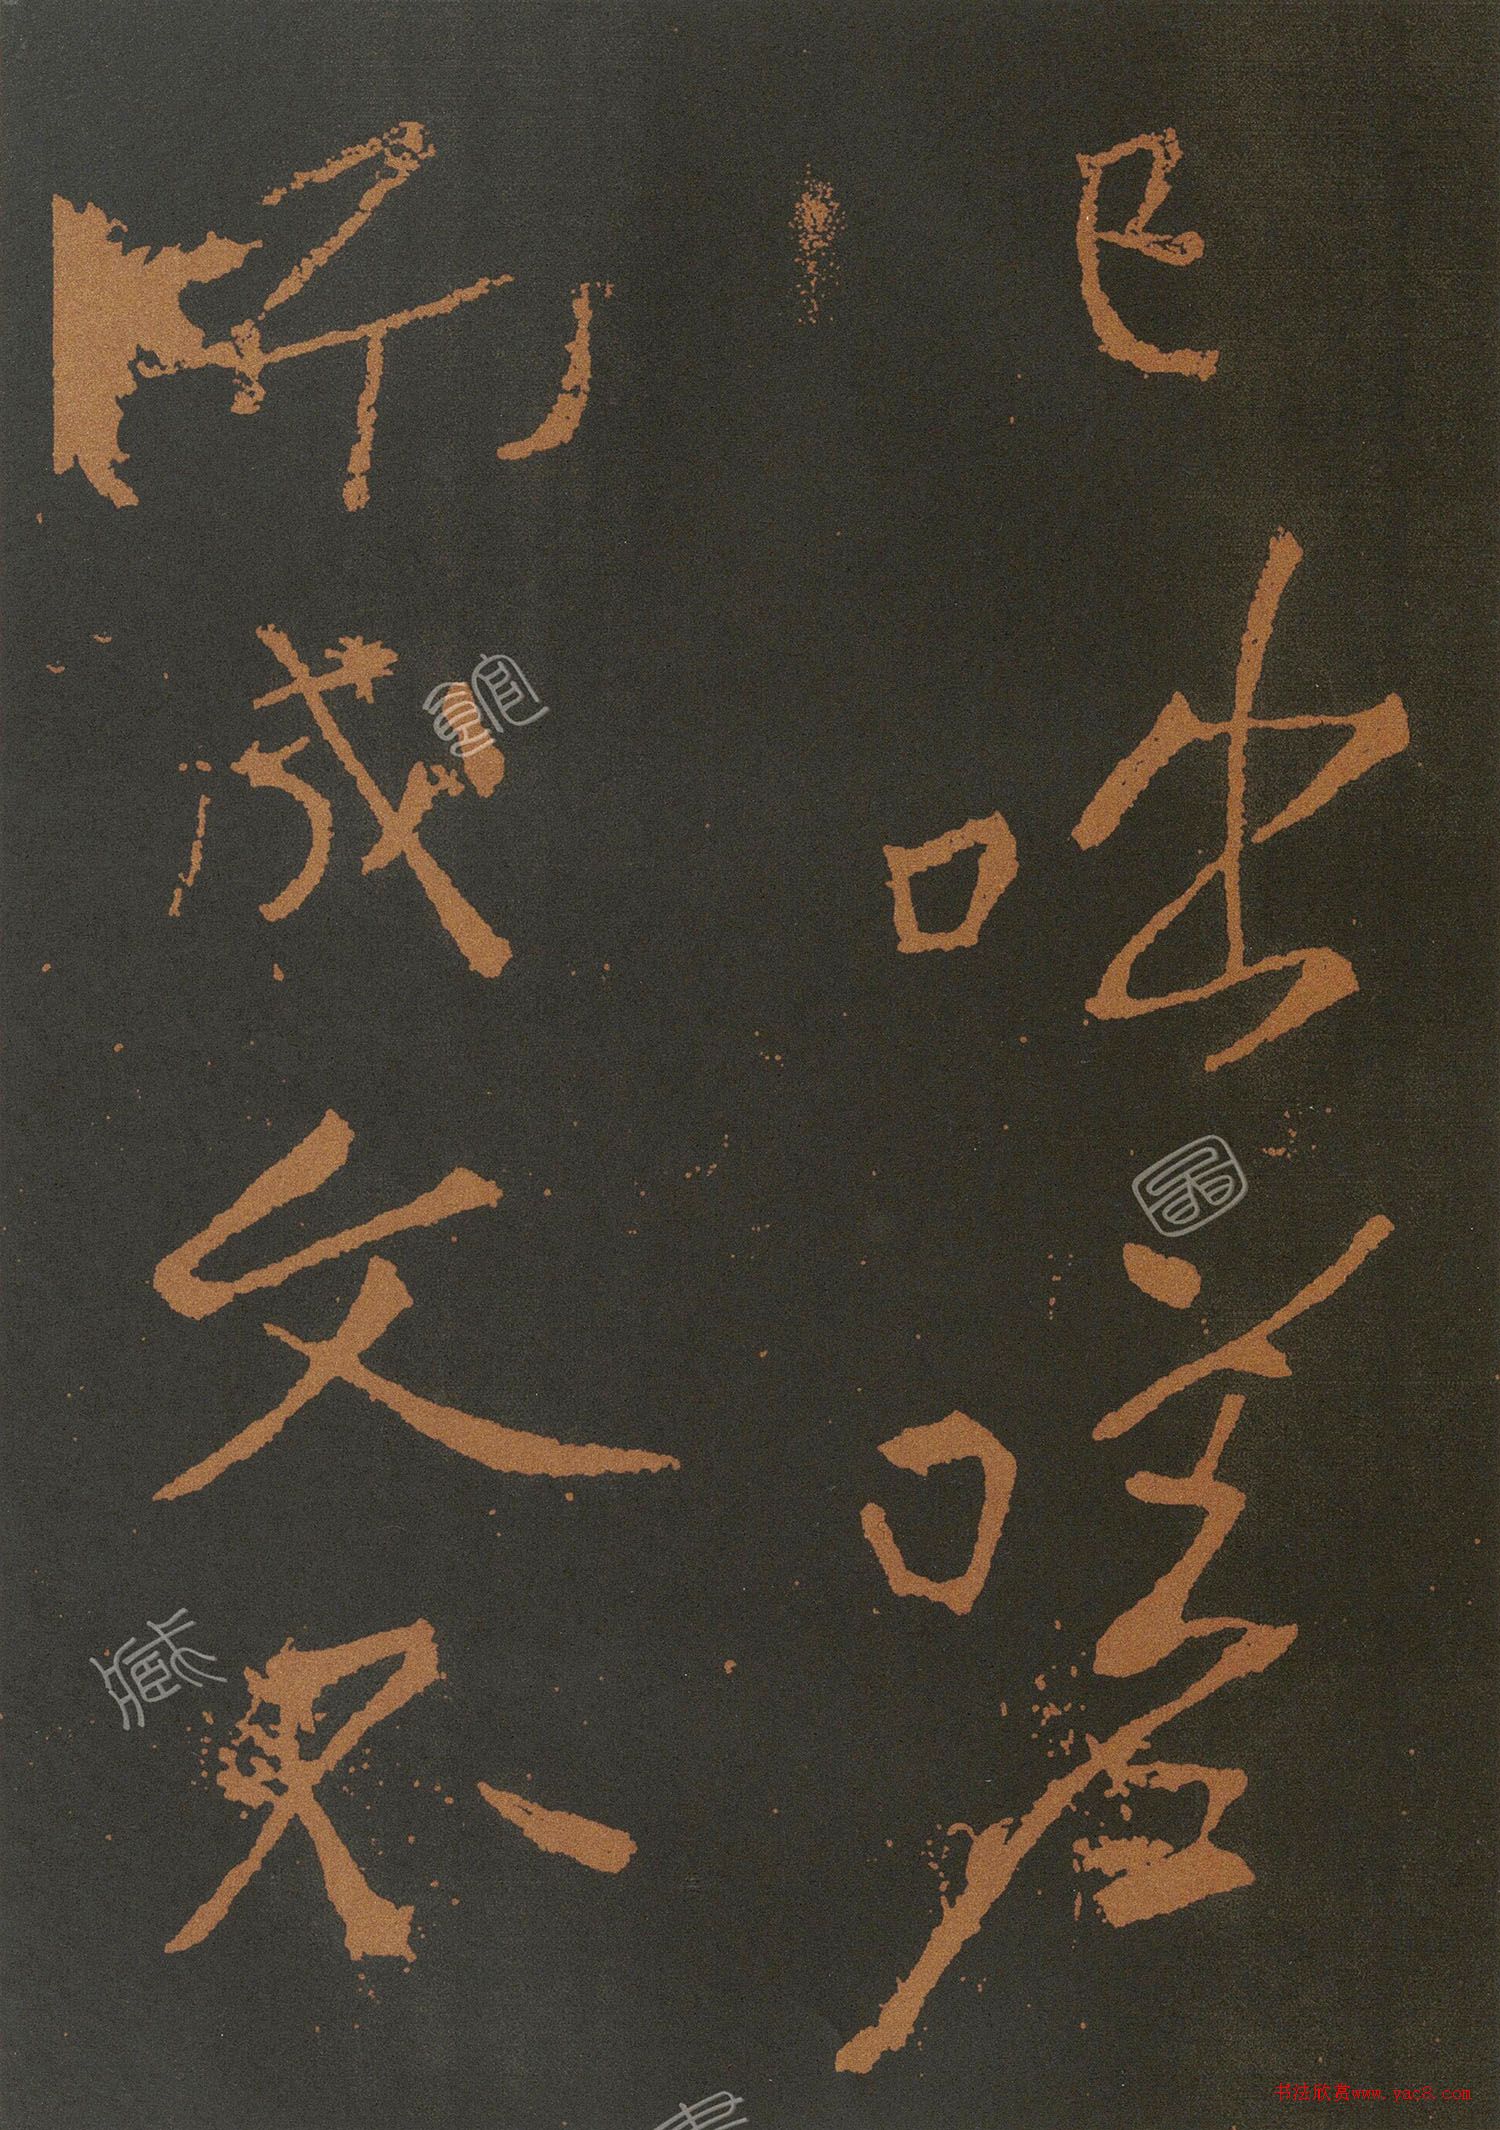 已咄嗟
成文不
书法欣赏www.yac8.com